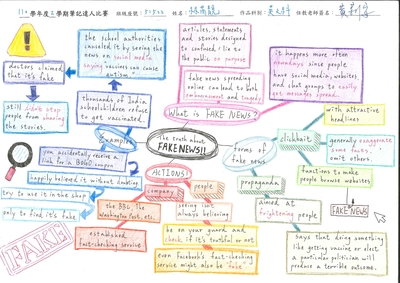 110 學年度2學期筆記達人比賽
作品科別:英文科
doctors claimed
that it's fake
still didn't stop
people from sharing
the stories.
the school authorities
canceled it by seeing the
news on social media
saying vaccines can cause
autism."
thousands of India,
schoolchildren refuse
to get vaccinated.
Examples
you accidentally receive a
link for a BOGO coupon
happily believed it without doubting.
try to use it in the shop
only to find it's fake
articles, statements,
and stories designed
to confuse / lie to
the public on purpose
fake news spreading
online can lead to both
embarrassment and tragedy.
it happens more often
nowadays since people
have social media, websites,
and chat groups to easily
get messages spread.
What is FAKE NEWS?
The truth about
FAKENEWS!!
Forms of
fake news
clickbait
with attractive
headlines
generally exaggerate
some facts,
omit others.
functions to make
people browse websites
propaganda
aimed at
frightening people
FAKE NEWS
says that doing something
like getting vaccine or elect
a particular politician will
produce a terrible outcome.
ACTIONS!
company
the BBC, The
Washington Post, etc.
established
fact-checking service.
people
seeing isn't
always believing.
be on your guard and
check if it's truthful or not.
even Facebook's fact-checking
service might also be "fake"
FAKE